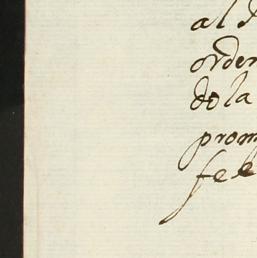 al
orden
dola
prom
fee